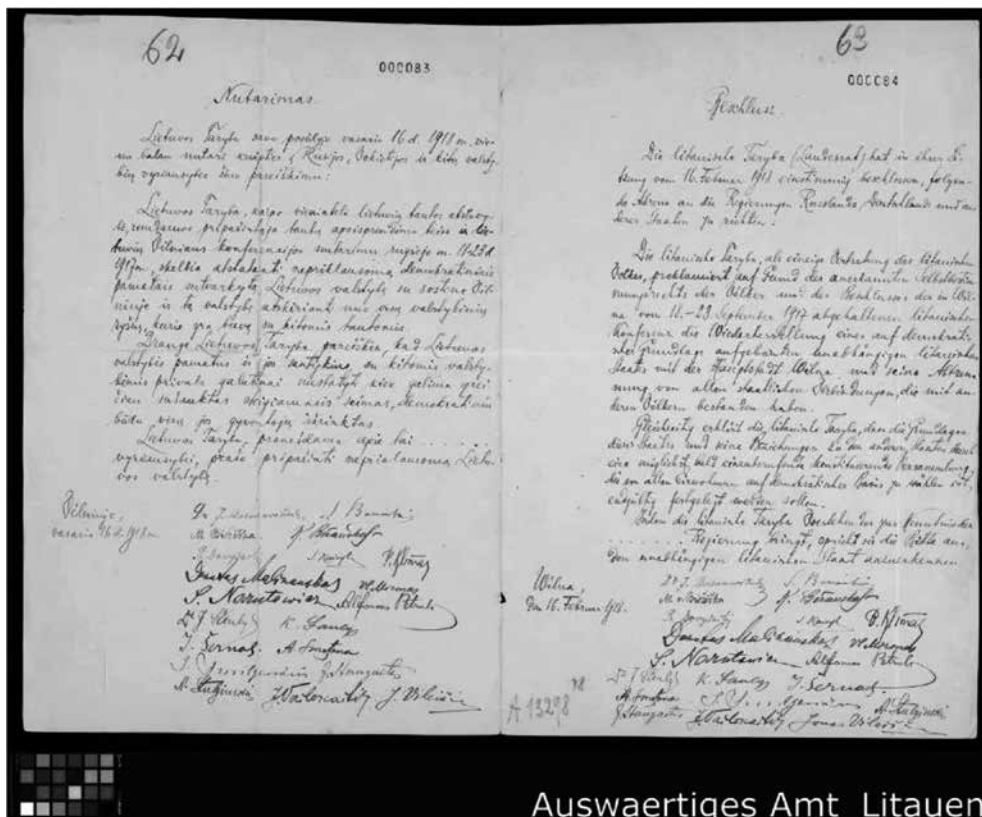 62
000083
Nutarimas.
Lietuvos Taryba savo posėdyje vasario 16 d. 1918 m. vie-
nu balsu nutarė kreiptis į Rusijos, Vokietijos ir kitų valsty-
bių vyriausybes šiuo pareiškimu:
Lietuvos Taryba, kaipo vienintelė lietuvių tautos atstovy-
bė, remdamos pripažintąja tautų apsisprendimo teise ir lie-
tuvių Vilniaus konferencijos nutarimu rugsėjo m. 18-23 d.
1917 m., skelbia atstatanti nepriklausomą demokratiniais
pamatais sutvarkytą Lietuvos valstybę su sostine Vil-
niuje ir tą valstybę atskirianti nuo visų valstybinių
ryšių, kurie yra buvę su kitomis tautomis.
Drauge Lietuvos Taryba pareiškia, kad Lietuvos
valstybės pamatus ir jos santykius su kitomis valsty-
bėmis privalo galutinai nustatyti kiek galima grei-
čiau sušauktas steigiamasis seimas, demokratiniu
būdu visų jos gyventojų išrinktas.
Lietuvos Taryba, pranešdama apie tai . . . . . .
vyriausybei, prašo pripažinti nepriklausomą Lietu-
vos valstybę.
Vilniuje,
vasario 16 d. 1918 m.
M. Biržiška
Donatas Malinauskas
S. Narutowicz Alfonsas Petrulis
K. Šaulys
J. Šernas A. Smetona
J. Staugaitis
J. Vailokaitis J. Vileišis
A 13298
63
000084
Beschluss.
Die litauische Taryba (Landesrat) hat in ihrer Si-
tzung vom 16. Februar 1918 einstimmig beschlossen, folgen-
de Adresse an die Regierungen Russlands, Deutschlands und an-
derer Staaten zu richten:
Die litauische Taryba, als einzige Vertretung des litauischen
Volkes, proklamiert auf Grund des anerkannten Selbstbestim-
mungsrechts der Völker und des Beschlusses der in Wil-
na vom 18.-23. September 1917 abgehaltenen litauischen
Konferenz die Wiederherstellung eines auf demokrati-
scher Grundlage aufgebauten unabhängigen litauischen
Staates mit der Hauptstadt Wilna und seine Abtren-
nung von allen staatlichen Verbindungen, die mit an-
deren Völkern bestanden haben.
Gleichzeitig erklärt die litauische Taryba, dass die Grundlagen
dieses Staates und seine Beziehungen zu den anderen Staaten durch
eine möglichst bald einzuberufende konstituierende Versammlung,
die von allen Einwohnern auf demokratischer Basis zu wählen ist,
endgültig festgelegt werden sollen.
Indem die litauische Taryba Vorstehendes zur Kenntnis der
. . . . . . . . Regierung bringt, spricht sie die Bitte aus,
den unabhängigen litauischen Staat anzuerkennen.
Wilna,
den 16. Februar 1918.
M. Biržiška
Donatas Malinauskas
S. Narutowicz Alfonsas Petrulis
K. Šaulys J. Šernas
A. Smetona
J. Staugaitis J. Vailokaitis Jonas Vileišis
Auswaertiges Amt Litauen